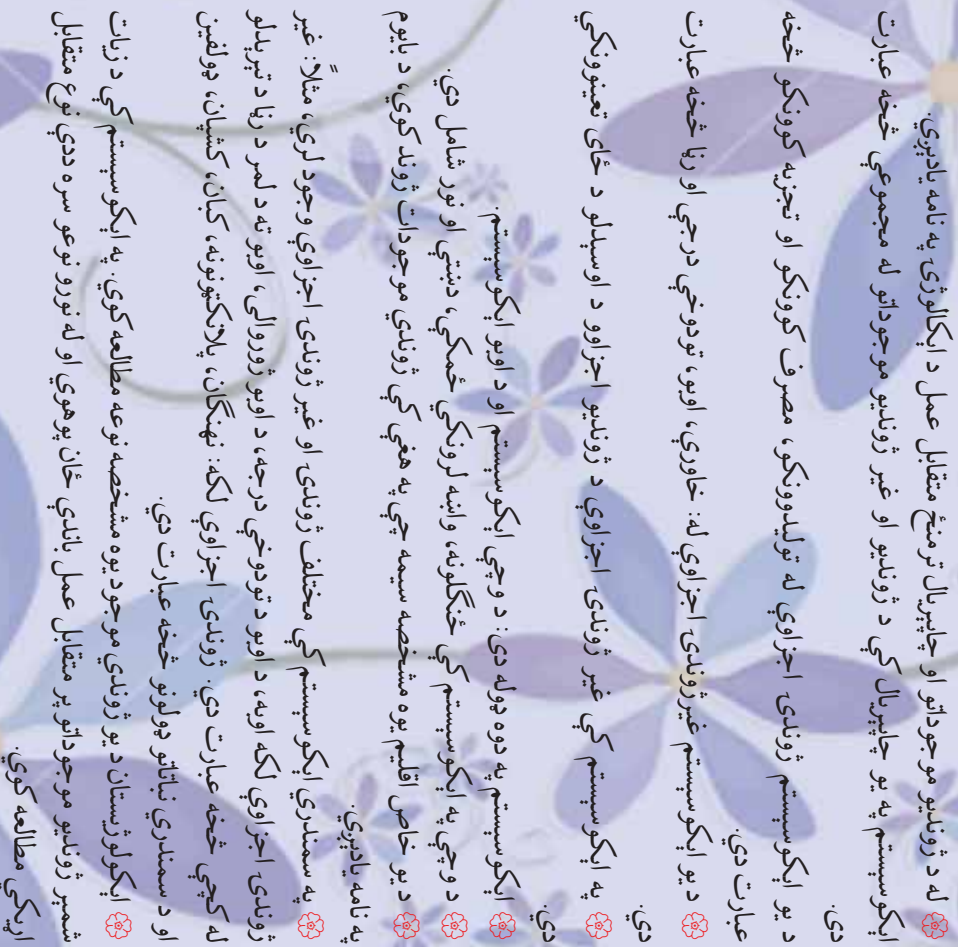 له د ژونديو موجوداتو او چاپيريال ترمنځ متقابل عمل د ايکالوژی په نامه ياديږي.
ايکوسيستم په يو چاپيريال کې د ژونديو او غير ژونديو موجوداتو له مجموعې څخه عبارت
دي.
د يو ايکوسيستم ژوندی اجزاوې له توليدوونکو، مصرف کوونکو او تجزيه کوونکو څخه
عبارت دي.
د يو ايکوسيستم غير ژوندی اجزاوې له: خاورې، اوبو، تودوخې درجې او رڼا څخه عبارت
دي.
په ايکوسيستم کې غير ژوندی اجزاوې د ژونديو اجزاوو د اوسيدلو د ځای تعينوونکي
دي.
ايکوسيستم په دوه ډوله دی: د وچې ايکوسيستم او د اوبو ايکوسيستم.
د وچې په ايکوسيستم کې ځنګلونه، واښه لرونکي ځمکې، دښتې او نور شامل دي.
د يو خاص اقليم يوه مشخصه سيمه چې په هغې کې ژوندي موجودات ژوند کوي، د بايوم
په نامه ياديږي.
په سمندري ايکوسيستم کې مختلف ژوندی او غير ژوندی اجزاوې وجود لري، مثلاً: غير
ژوندی اجزاوې لکه اوبه، د اوبو د تودوخې درجه، د اوبو ژوروالی، اوبو ته د لمر د رڼا د تيريدلو
له کچې څخه عبارت دي. ژوندی اجزاوې لکه: نهنګان، پلانکټونونه، کبان، کشپان، ډولفين
او د سمندري نباتاتو ډولونو څخه عبارت دي.
ايکولوژستان د يو ژوندي موجود يوه مشخصه نوعه مطالعه کوي. په ايکوسيستم کې د زيات
شمېر ژونديو موجوداتو پر متقابل عمل باندې ځان پوهوي او له نورو نوعو سره ددې نوع متقابل
اړيکې مطالعه کوي.